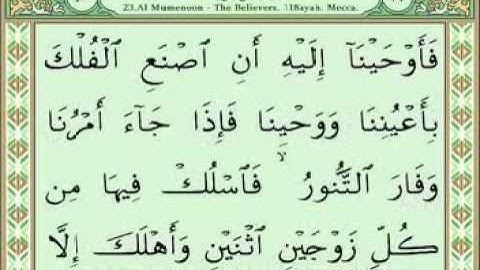 23.Al Mumenoon - The Believers. 118ayah. Mecca.
فَأَوْحَيْنَآ إِلَيْهِ أَنِ ٱصْنَعِ ٱلْفُلْكَ
بِأَعْيُنِنَا وَوَحْيِنَا فَإِذَا جَآءَ أَمْرُنَا
وَفَارَ ٱلتَّنُّورُ ۙ فَٱسْلُكْ فِيهَا مِن
كُلٍّ زَوْجَيْنِ ٱثْنَيْنِ وَأَهْلَكَ إِلَّا